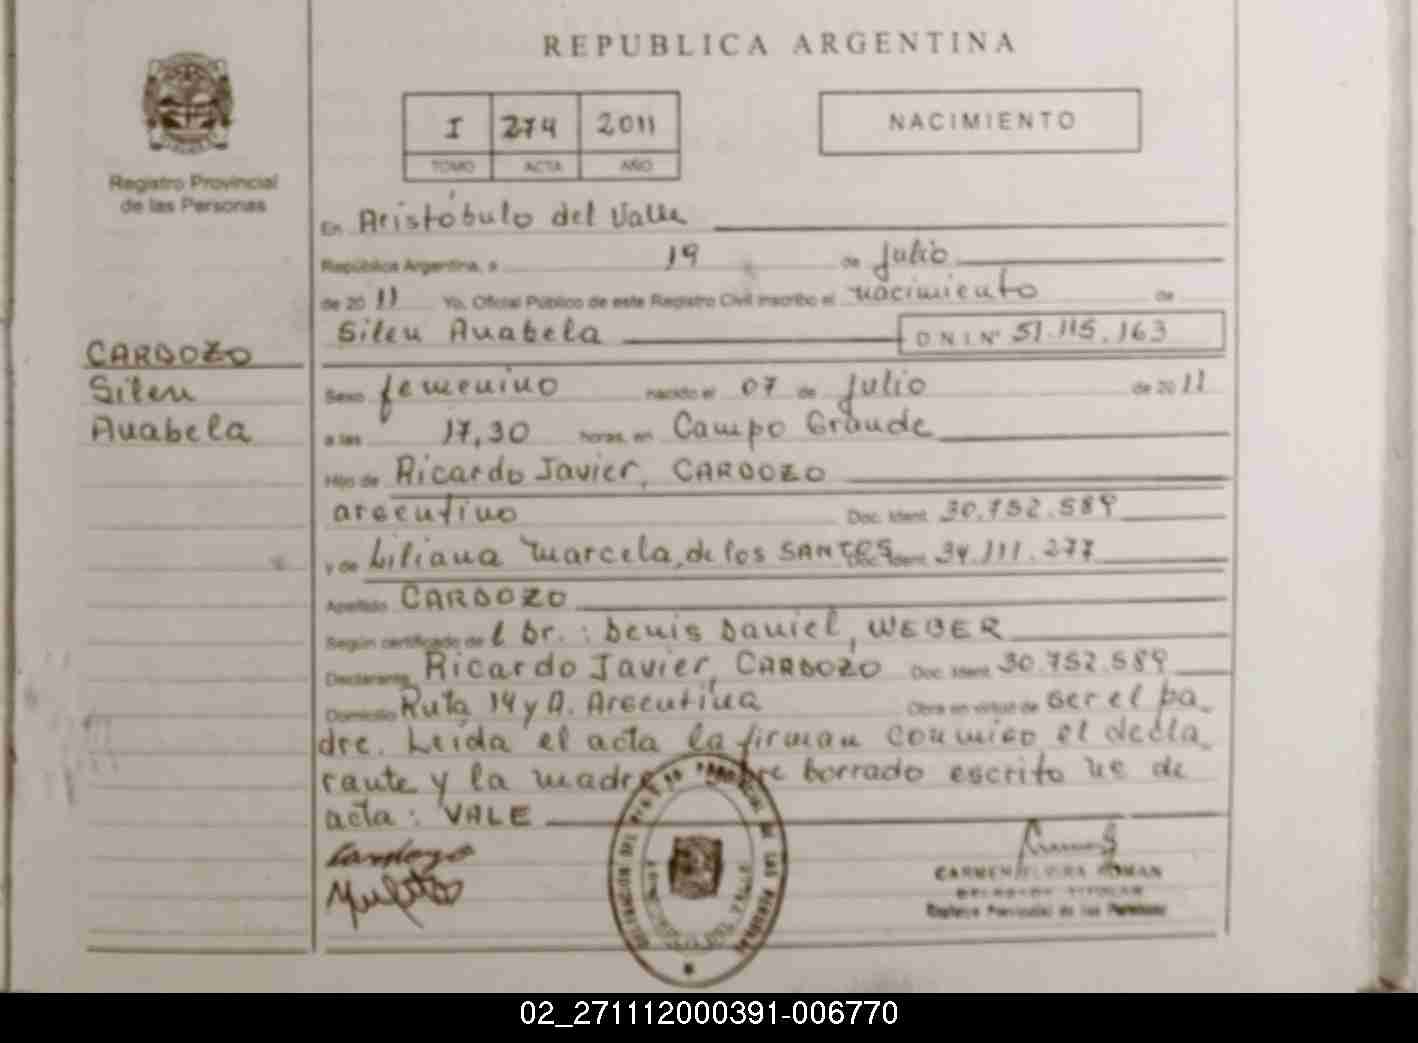 REPUBLICA ARGENTINA
I 274 2011
TOMO ACTA AÑO
NACIMIENTO
Registro Provincial
de las Personas
En Aristóbulo del Valle
República Argentina, a 19 de Julio
de 2011 Yo, Oficial Público de este Registro Civil inscribo el nacimiento de
Silen Anabela D N I Nº 51.115.163
CARDOZO
Silen
Anabela
Sexo femenino nacido el 07 de Julio de 2011
a las 17,30 horas, en Campo Grande
Hijo de Ricardo Javier, CARDOZO
argentino Doc. Ident. 30.752.589
y de Liliana Marcela, de los SANTOS Doc. Ident. 34.111.277
Apellido CARDOZO
Según certificado de l Dr.: Denis Daniel, WEBER
Declarante Ricardo Javier, CARDOZO Doc. Ident. 30.752.589
Domicilio Ruta 14 y A. Argentina Obra en virtud de ser el pa-
dre. Leída el acta la firman conmigo el decla-
rante y la madre. Sobre borrado escrito nº de
acta: VALE
Cardozo
CARMEN ELVIRA ROMAN
DELEGADO TITULAR
Registro Provincial de las Personas
02_271112000391-006770